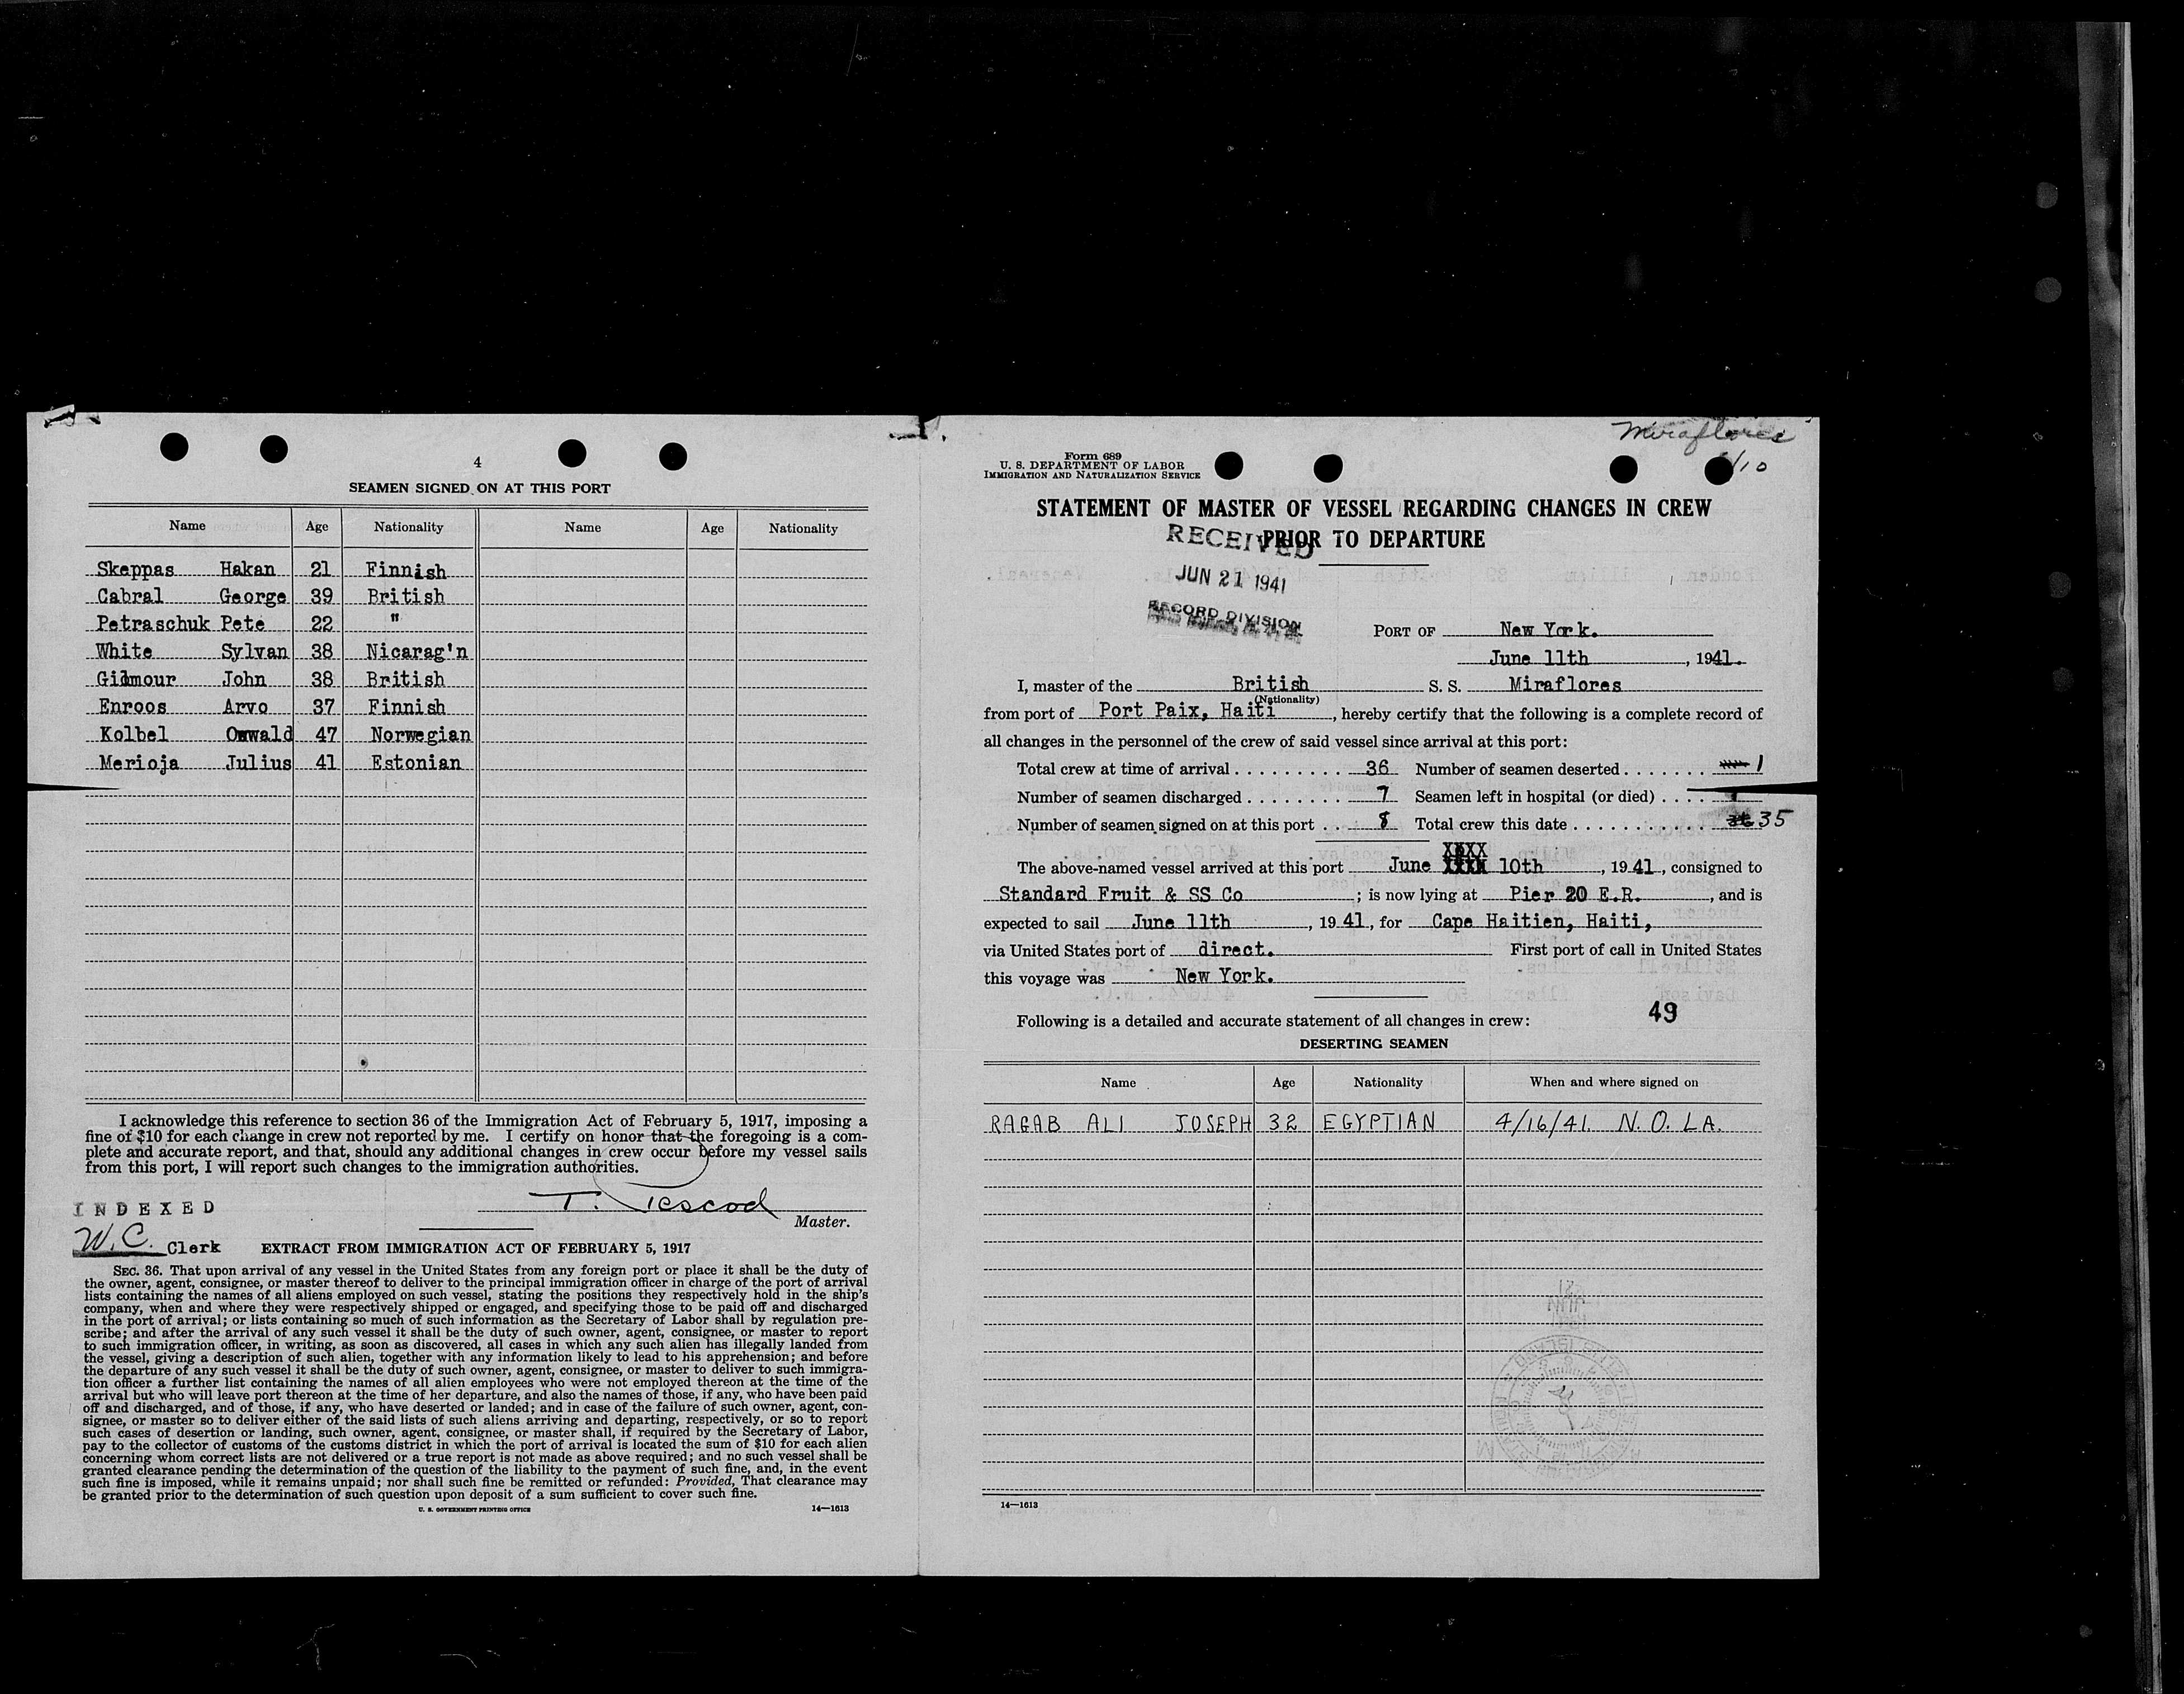 4
SEAMEN SIGNED ON AT THIS PORT
Name Age Nationality Name Age Nationality
Skeppas Hakan 21 Finnish
Cabral George 39 British
Petraschuk Pete 22 "
White Sylvan 38 Nicarag'n
Gilmour John 38 British
Enroos Arvo 37 Finnish
Kolbel Oswald 47 Norwegian
Merioja Julius 41 Estonian
I acknowledge this reference to section 36 of the Immigration Act of February 5, 1917, imposing a
fine of $10 for each change in crew not reported by me. I certify on honor that the foregoing is a com-
plete and accurate report, and that, should any additional changes in crew occur before my vessel sails
from this port, I will report such changes to the immigration authorities.
T.
Master.
INDEXED
W.C. Clerk
EXTRACT FROM IMMIGRATION ACT OF FEBRUARY 5, 1917
SEC. 36. That upon arrival of any vessel in the United States from any foreign port or place it shall be the duty of
the owner, agent, consignee, or master thereof to deliver to the principal immigration officer in charge of the port of arrival
lists containing the names of all aliens employed on such vessel, stating the positions they respectively hold in the ship's
company, when and where they were respectively shipped or engaged, and specifying those to be paid off and discharged
in the port of arrival; or lists containing so much of such information as the Secretary of Labor shall by regulation pre-
scribe; and after the arrival of any such vessel it shall be the duty of such owner, agent, consignee, or master to report
to such immigration officer, in writing, as soon as discovered, all cases in which any such alien has illegally landed from
the vessel, giving a description of such alien, together with any information likely to lead to his apprehension; and before
the departure of any such vessel it shall be the duty of such owner, agent, consignee, or master to deliver to such immigra-
tion officer a further list containing the names of all alien employees who were not employed thereon at the time of the
arrival but who will leave port thereon at the time of her departure, and also the names of those, if any, who have been paid
off and discharged, and of those, if any, who have deserted or landed; and in case of the failure of such owner, agent, con-
signee, or master so to deliver either of the said lists of such aliens arriving and departing, respectively, or so to report
such cases of desertion or landing, such owner, agent, consignee, or master shall, if required by the Secretary of Labor,
pay to the collector of customs of the customs district in which the port of arrival is located the sum of $10 for each alien
concerning whom correct lists are not delivered or a true report is not made as above required; and no such vessel shall be
granted clearance pending the determination of the question of the liability to the payment of such fine, and, in the event
such fine is imposed, while it remains unpaid; nor shall such fine be remitted or refunded: Provided, That clearance may
be granted prior to the determination of such question upon deposit of a sum sufficient to cover such fine.
U. S. GOVERNMENT PRINTING OFFICE 14—1613
Miraflores
6/10
Form 689
U. S. DEPARTMENT OF LABOR
IMMIGRATION AND NATURALIZATION SERVICE
STATEMENT OF MASTER OF VESSEL REGARDING CHANGES IN CREW
PRIOR TO DEPARTURE
RECEIVED
JUN 21 1941
RECORD DIVISION
PORT OF New York.
June 11th, 1941.
I, master of the British S. S. Miraflores
(Nationality)
from port of Port Paix, Haiti, hereby certify that the following is a complete record of
all changes in the personnel of the crew of said vessel since arrival at this port:
Total crew at time of arrival 36 Number of seamen deserted 1
Number of seamen discharged 7 Seamen left in hospital (or died) 1
Number of seamen signed on at this port 8 Total crew this date 35
The above-named vessel arrived at this port June 10th, 1941, consigned to
Standard Fruit & SS Co; is now lying at Pier 20 E.R., and is
expected to sail June 11th, 1941, for Cape Haitien, Haiti,
via United States port of direct. First port of call in United States
this voyage was New York.
49
Following is a detailed and accurate statement of all changes in crew:
DESERTING SEAMEN
Name Age Nationality When and where signed on
RAGAB ALI JOSEPH 32 EGYPTIAN 4/16/41. N.O. LA.
14—1613